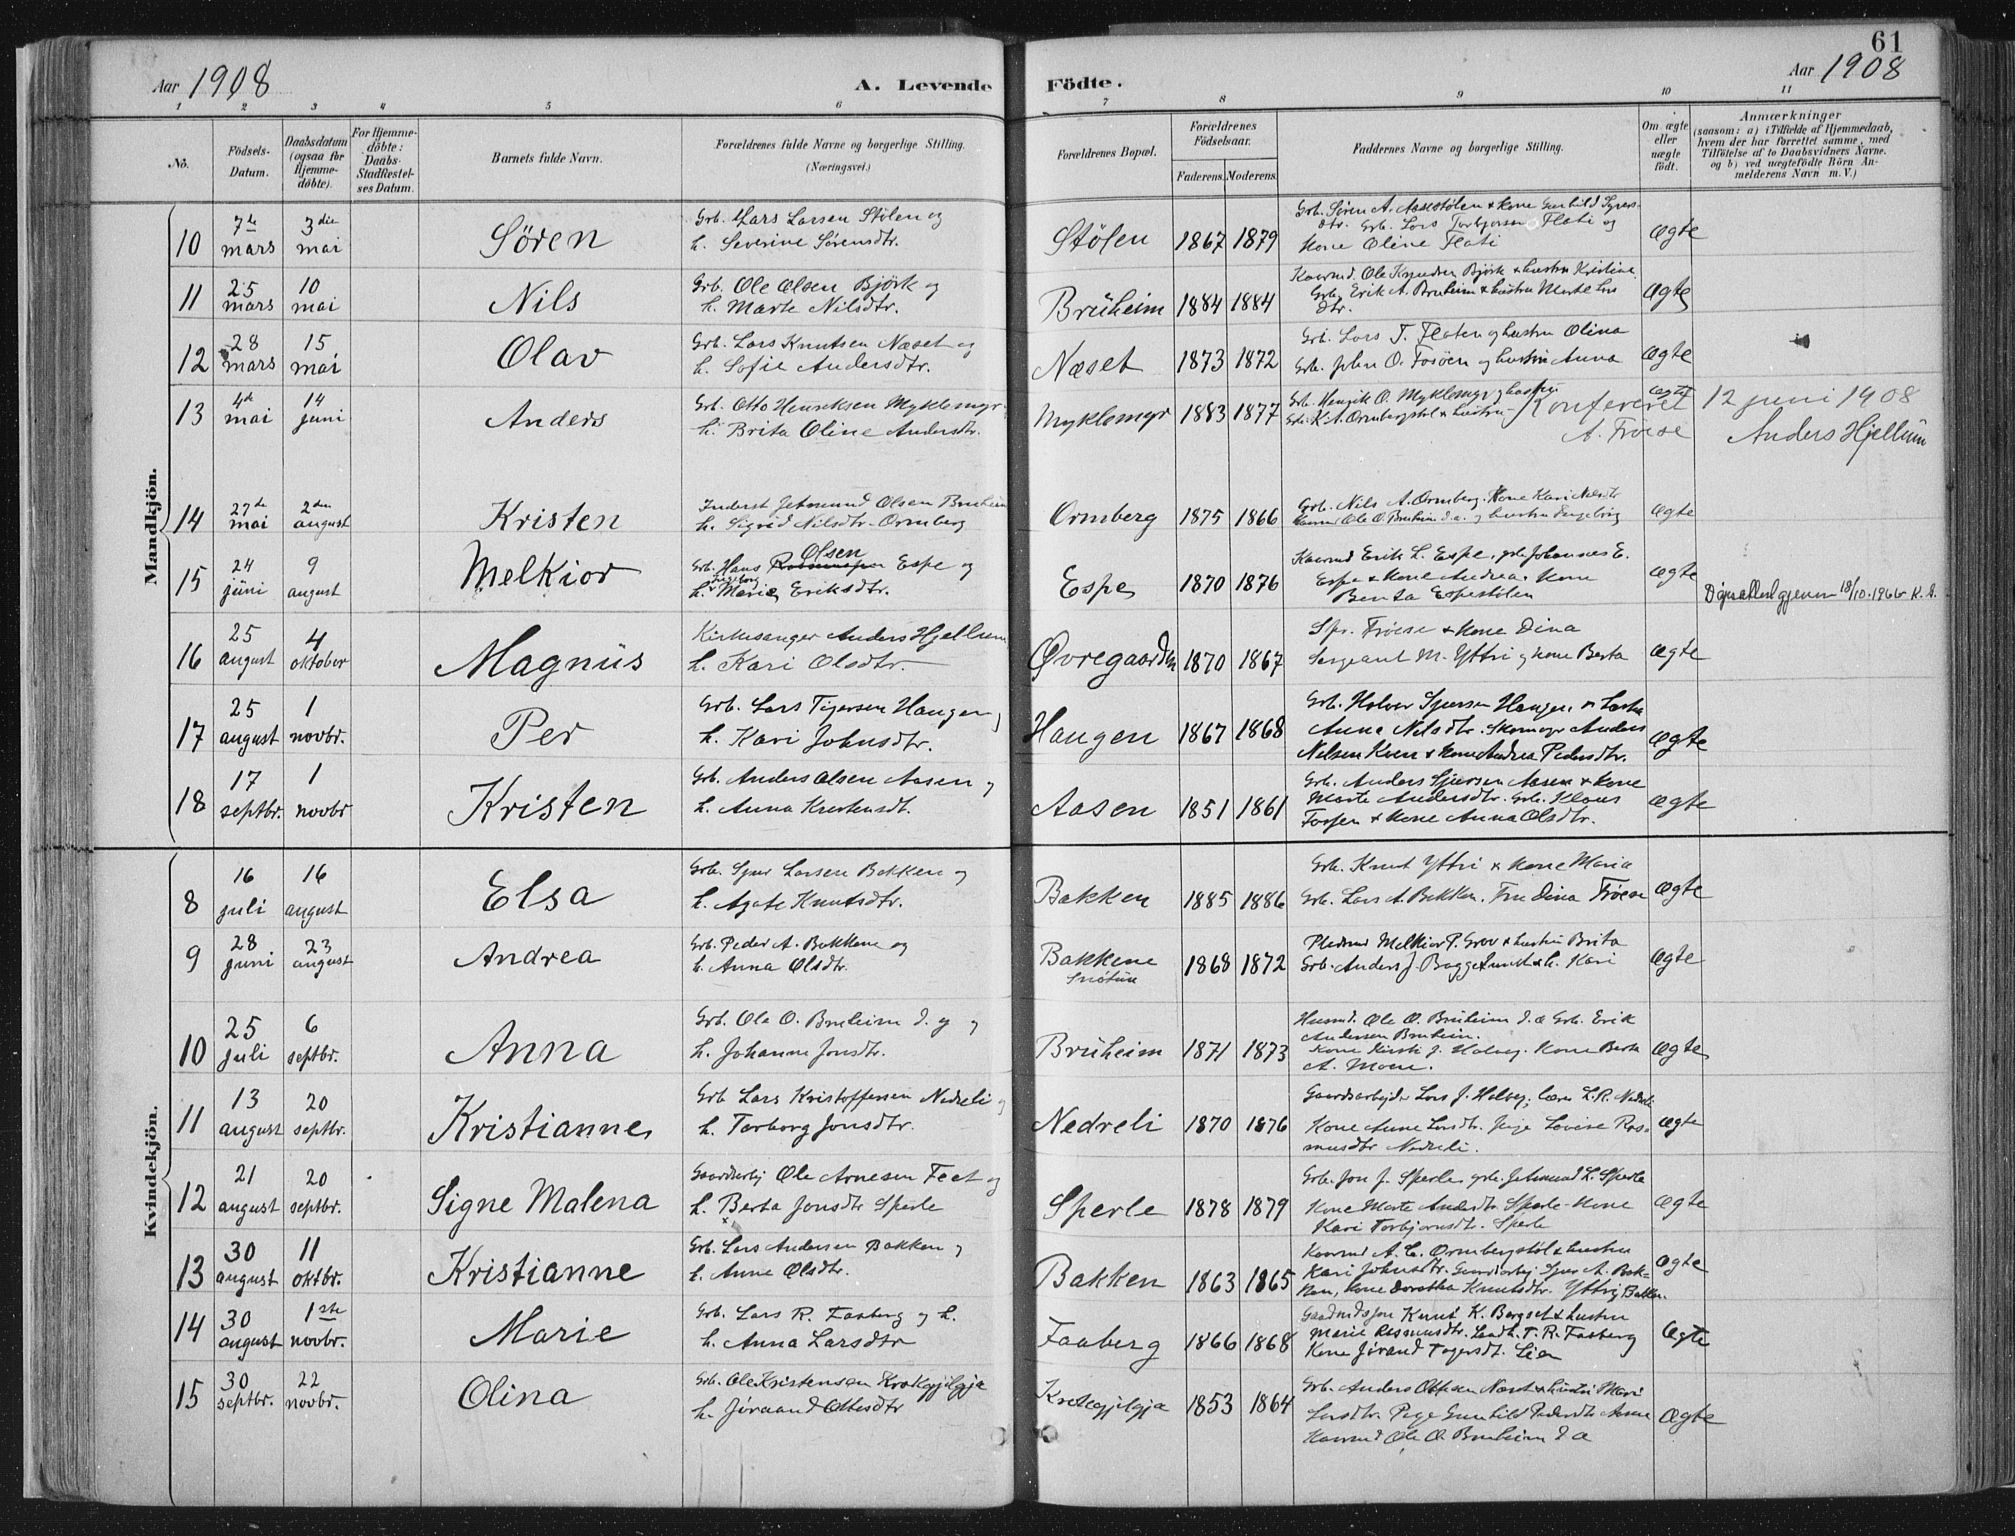 61
Aar 1908
A. Levende
Födte.
Aar 1908
1 2 3 4 5 6 7 8 9 10 11
No.
Födsels-
Datum.
Daabsdatum
(ogsaa for
Hjemme-
döbte).
For Hjemme-
döbte:
Daabs-
Stadfæstel-
ses Datum.
Barnets fulde Navn.
Forældrenes fulde Navne og borgerlige Stilling.
(Næringsvei.)
Forældrenes Bopæl.
Forældrenes
Födselsaar.
Faderens. Moderens.
Faddernes Navne og borgerlige Stilling.
Om ægte
eller
uægte
födt.
Anmærkninger
(saasom: a) i Tilfælde af Hjemmedaab,
hvem der har forrettet samme, med
Tilföielse af to Daabsvidners Navne.
og b) ved uægtefödte Börn An-
melderens Navn m. V.)
Mandkjön.
10 7de mars 3die mai Søren
Grb. Lars Larsen Stølen og
h. Severine Sørensdtr.
Stølen 1867 1879
Grb. Søren A. Aasestølen & kone Gunhild
Grb. Lars Torbjørnsen Flati og
Kone Oline Flati
Ægte
11 25 mars 10 mai Nils
Grb. Ole Olsen Bjørk og
h. Marte Nilsdtr.
Brüheim 1884 1884
Kaarmd. Ole Knudsen Bjørk & hustru Kristine
Grb. Erik A. Bruheim & hustru Marte Lars
dtr.
Ægte
12 28 mars 15 mai Olav
Grb. Lars Knutsen Næset og
h. Sofie Andersdtr.
Næset 1873 1872
Grb. Lars T. Flaten og hustru Olina
Grb. John O. Fosøen og hustru Anna
Ægte
13 4de mai 14 juni Anders
Grb. Otto Henriksen Myklemyr
h. Brita Oline Andersdtr.
Myklemyr 1883 1877
Grb. Henrik O. Myklemyr og hustru
Grb. K. A. Ormbergstøl & hustru
Ægte
Konfereret 12 juni 1908
A. Trøese Anders Hjellum
14 27de mai 2den august Kristen
Inderst Jetmund Olsen Bruheim
h. Sigrid Nilsdtr. Ormberg
Ormberg 1875 1866
Grb. Nils A. Ormberg. Kone Kari Nilsdtr
Kaarmd Ole O. Bruheim d.æ. og hustru Ingeborg
Ægte
15 24 juni 9 august Melkior
Olsen
Grb. Hans Espe og
Ingeborg
h. Marie Eriksdtr.
Espe 1870 1876
Kaarmd Erik L. Espe, grb. Johannes E.
Espe & kone Andrea. Kone
Berta Espestølen
Ægte
18/10.1966 K. S.
16 25 august 4 oktober Magnüs
Kirkesanger Anders Hjellum
h. Kari Olsdtr.
Øvregaarden 1870 1867
Spr. Trøese & kone Dina
Sergeant M. Yttri og kone Berta
Ægte
17 25 august 1 novbr. Per
Grb. Lars Sjursen Haugen
h. Kari Johnsdtr.
Haugen 1867 1868
Grb. Halvor Sjursen Haugen
Anna Nilsdtr. Skomagr Anders
Nilsen Kven & kone Andrea Pedersdtr.
Ægte
18 17 septbr. 1 novbr Kristen
Grb. Anders Olsen Aasen og
h. Anna Kristensdt.
Aasen 1851 1861
Grb. Anders Sjursen Aasen & kone
Marte Andersdtr. Grb. Klaus
& kone Anna Olsdtr.
Ægte
Kvindekjön.
8 16 juli 16 august Elsa
Grb. Sjur Larsen Bakken og
h. Agate Knutsdtr.
Bakken 1885 1886
Grb. Knut Yttri & kone Maria
Grb. Lars A. Bakken. Fru Dina Trøese
Ægte
9 28 juni 23 august Andrea
Grb. Peder A. Bakkene og
h. Anna Olsdtr.
Bakkene 1868 1872
Melkior P. Grov & hustru Brita
Grb. Anders J. h. Kari
Ægte
10 25 juli 6 septbr. Anna
Grb. Ole O. Bruheim d. y. og
h. Johanne Jonsdtr.
Brüheim 1871 1873
Husmd. Ole O. Bruheim d.æ. Grb. Erik
Andersen Bruheim.
Kone Kirsti J. Kone Berta
A. Moene.
Ægte
11 13 august 20 septbr. Kristianne
Grb Lars Kristoffersen Nedreli og
h. Torborg Jonsdtr.
Nedreli 1870 1876
Gaardsarbejdr Lars J. lærer L. R. Nedreli
Kone Anne Larsdtr. Pige Lovise Ras-
musdtr Nedreli.
Ægte
12 21 august 20 septbr. Signe Malena
Gaardarbj Ole Arnesen Feet og
h. Berta Jonsdtr Sperle
Sperle 1878 1879
Grb. Jon J. Sperle, grb. Jetmund L. Sperle
Kone Marte Andersdtr Sperle. Kone
Kari Torbjørnsdtr. Sperle
Ægte
13 30 august 11 oktbr. Kristianne
Grb. Lars Andersen Bakken og
h. Anne Olsdtr.
Bakken 1863 1865
Kaarmd A. L. Ormbergstøl & hustru
Kari Johnsdtr. Gaardarbej. Sjur A. Bak-
ken, kone Dorothea Knutsdtr.
Ægte
14 30 august 1ste novbr. Marie
Grb. Lars R. Faaberg og h.
h. Anna Larsdtr
Faaberg 1866 1868
Knut K. Bergset & hustru
Marie Rasmusdtr. T. R. Faaberg
Kone Jørand
Ægte
15 30 septbr. 22 novbr. Olina
Grb. Ole Kristensen Krækegjelgja
h. Jøraand Ottesdtr
Krekegjelgja 1853 1864
Grb. Anders Ottesen & hustru Mari
Larsdtr. Pige Gunhild Pedersdtr
Kaarmd Ole O. Bruheim d æ
Ægte